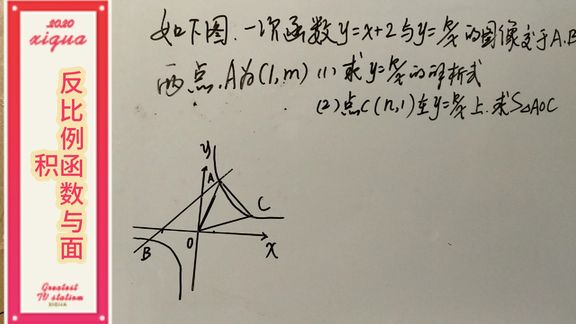 2020
xigua
反比例函数与面
积
Greatest
TV station
如下图.一次函数y=x+2与y=k/x的图像交于A.B
两点.A为(1,m) (1)求y=k/x的解析式
(2)点C(n,1)在y=k/x上.求S△AOC
y
A
C
B
O
x